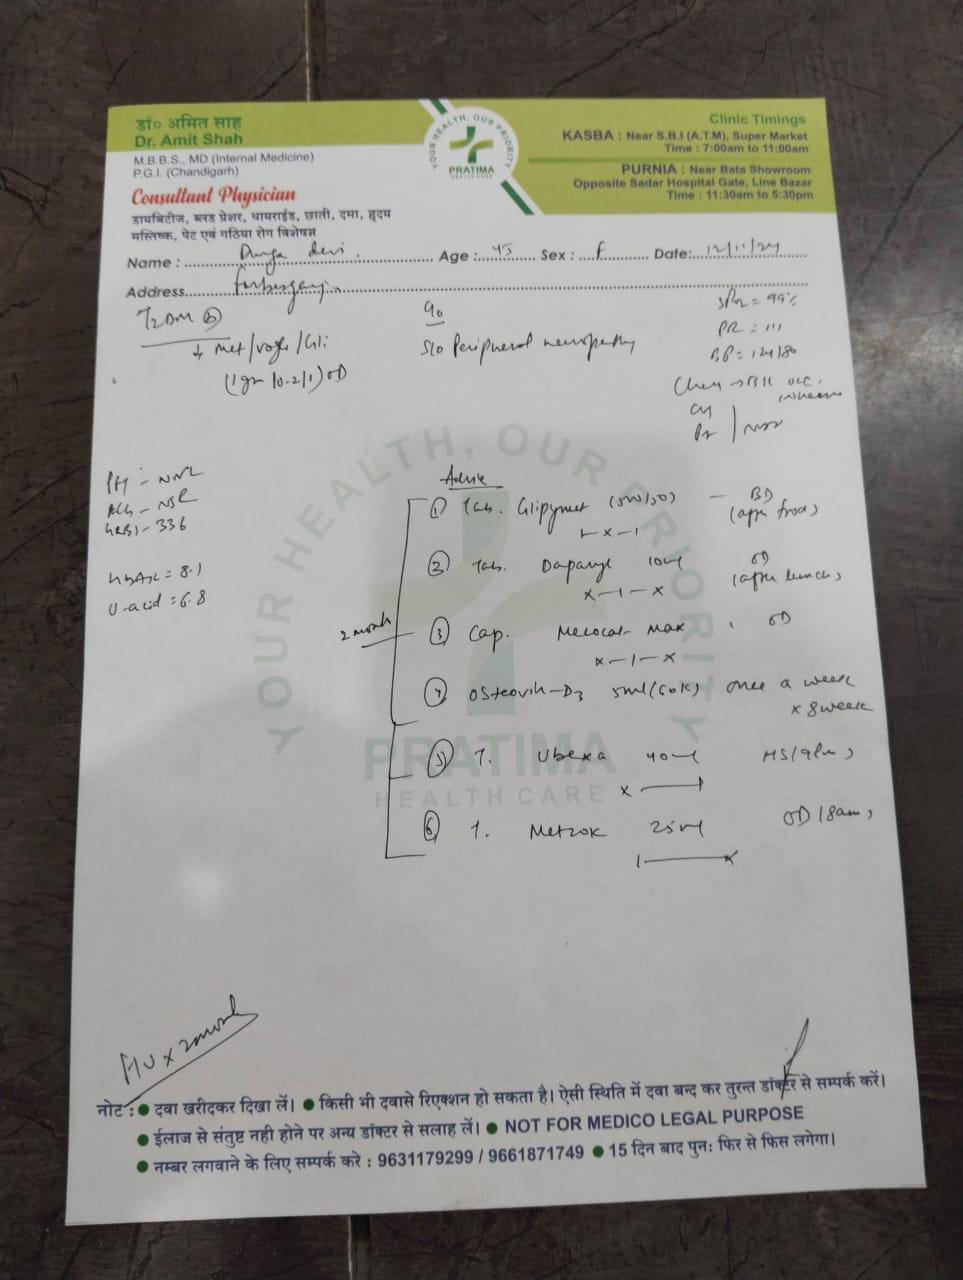 डां० अमित साह
Dr. Amit Shah
M.B.B.S., MD (Internal Medicine)
P.G.I. (Chandigarh)
Consultant Physician
डायबिटीज, ब्लड प्रेशर, थायराईड, छाती, दमा, हृदय
मस्तिष्क, पेट एवं गठिया रोग विशेषज्ञ
YOUR HEALTH, OUR PRIORITY
PRATIMA
HEALTH CARE
Clinic Timings
KASBA : Near S.B.I (A.T.M), Super Market
Time : 7:00am to 11:00am
PURNIA : Near Bata Showroom
Opposite Sadar Hospital Gate, Line Bazar
Time : 11:30am to 5:30pm
Name : Durga devi Age : 45 Sex : F Date: 12/11/24
Address
T2DM
Met/Vogli/Gli
(1gm/0.2/1) OD
c/o
S/o Peripheral neuropathy
SPO2 = 99%
PR = 111
BP = 124/80
HbA1c = 8.1
U-acid = 6.8
GRBS - 336
Advice
① Tab. (500/50) - BD
(after food)
② Tab. 10mg OD
(after lunch)
x-1-x
2 month
③ Cap. Mecocal- Max OD
x-1-x
④ D3 5ml (60K) once a week
x 8 week
⑤ T. Ubexa 40mg HS/9pm
⑥ T. Metzok 25mg OD/8am
YOUR HEALTH, OUR PRIORITY
PRATIMA
HEALTH CARE
F/U x 2 month
नोट : ● दवा खरीदकर दिखा लें। ● किसी भी दवासे रिएक्शन हो सकता है। ऐसी स्थिति में दवा बन्द कर तुरन्त डॉक्टर से सम्पर्क करें।
● ईलाज से संतुष्ट नही होने पर अन्य डॉक्टर से सलाह लें। ● NOT FOR MEDICO LEGAL PURPOSE
● नम्बर लगवाने के लिए सम्पर्क करे : 9631179299 / 9661871749 ● 15 दिन बाद पुनः फिर से फिस लगेगा।